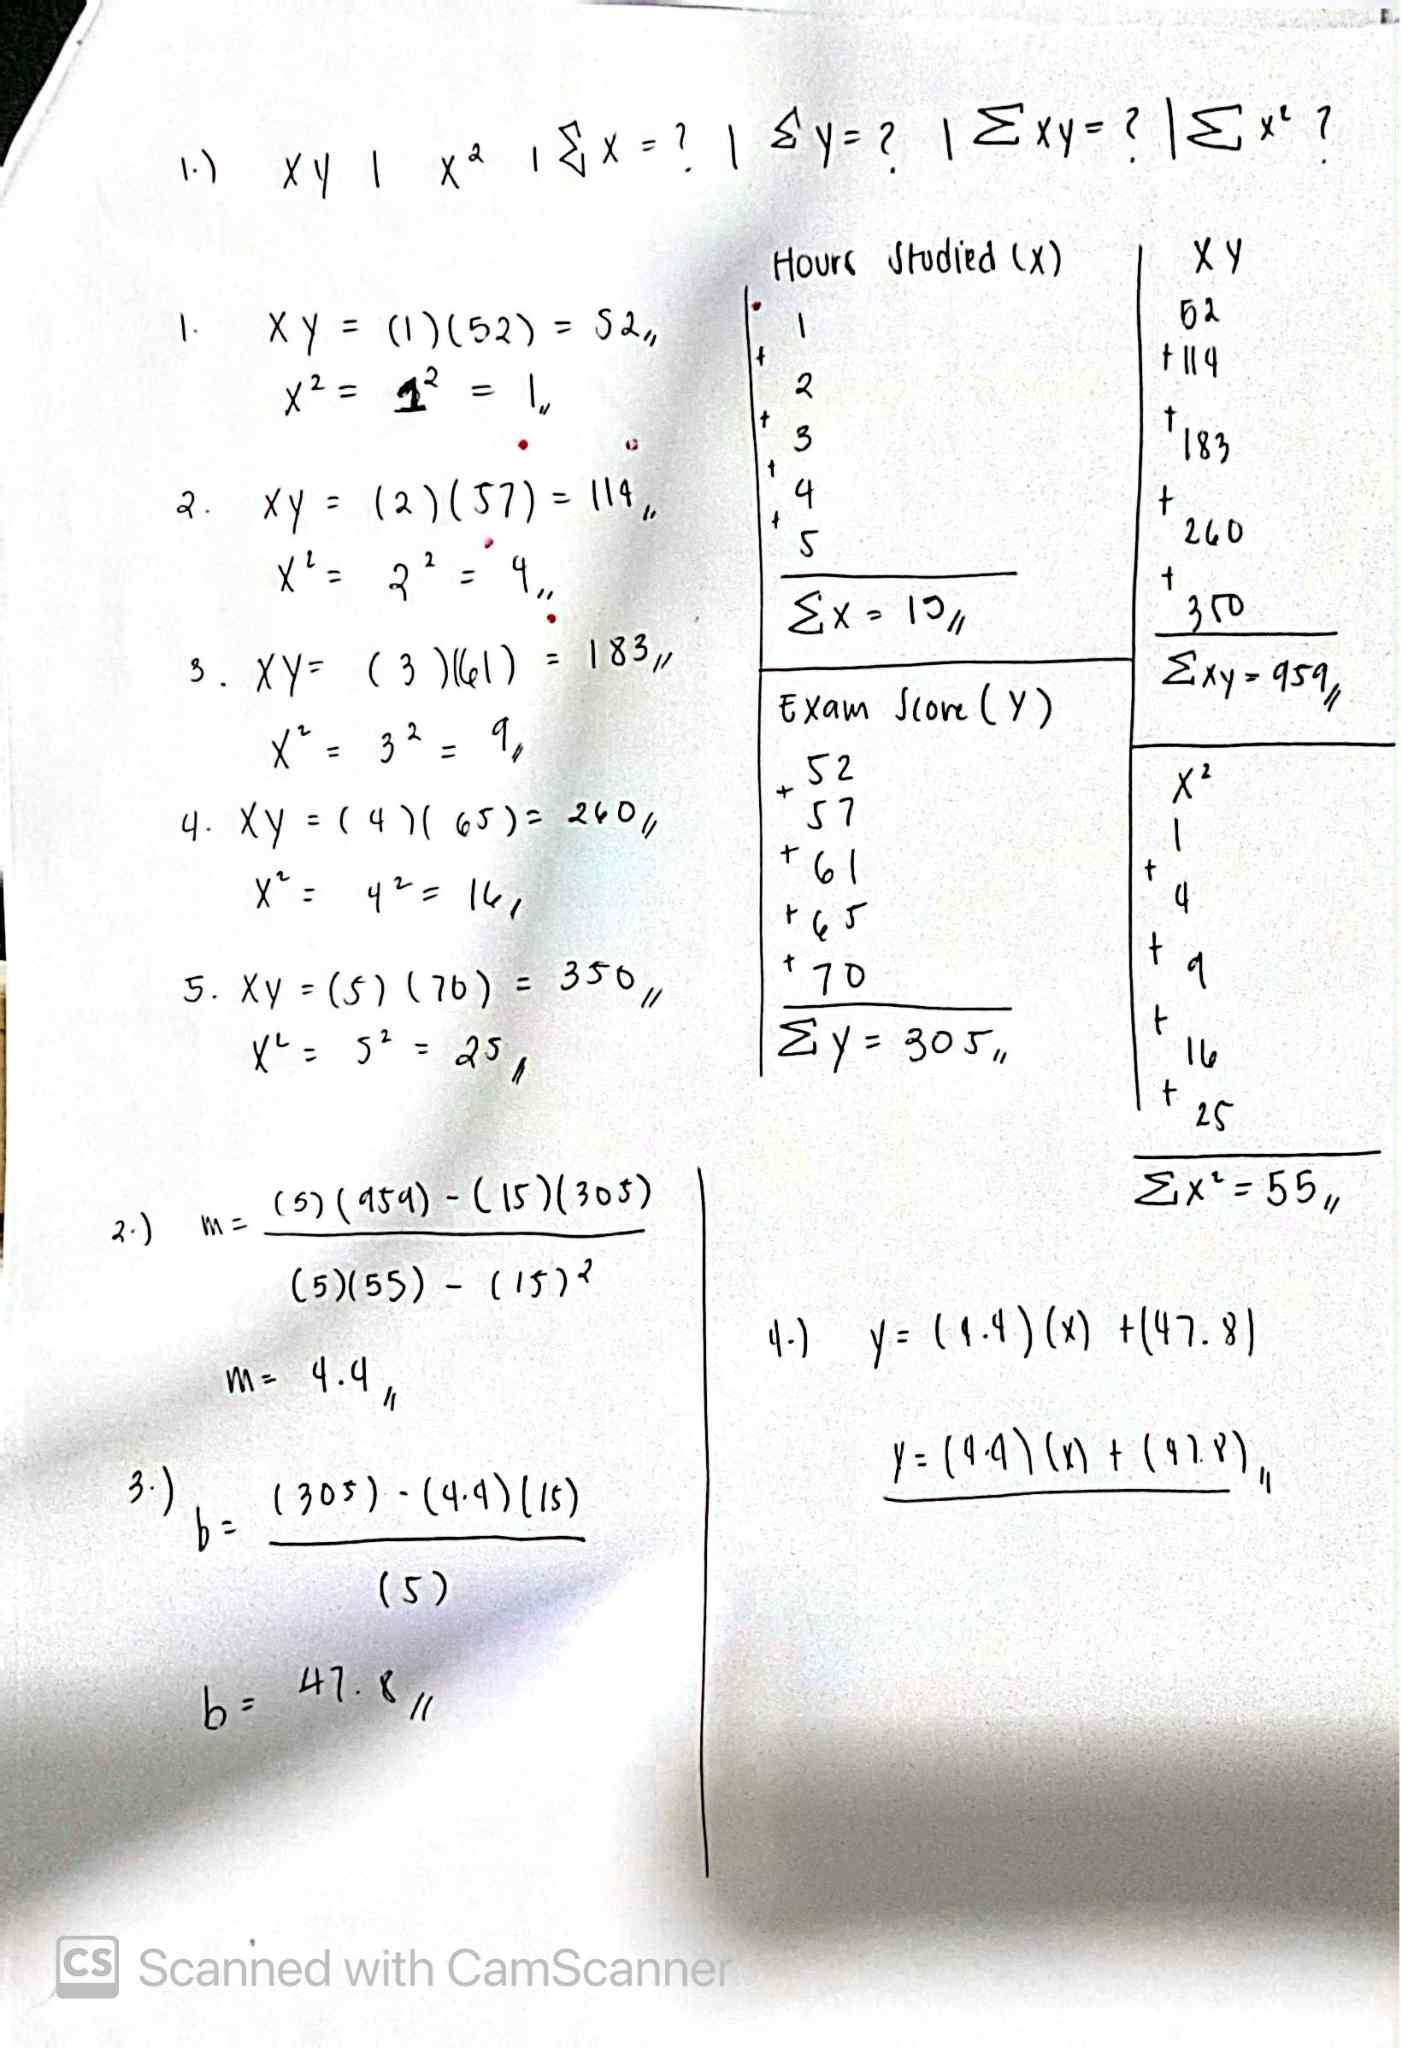 1.) XY | X² | Σx = ? | Σy = ? | Σxy = ? | Σx² ?
1. XY = (1)(52) = 52,,
X² = 1² = 1,,
2. XY = (2)(57) = 114,,
X² = 2² = 4,,
3. XY = (3)(61) = 183,,
X² = 3² = 9,,
4. XY = (4)(65) = 260,,
X² = 4² = 16,
5. XY = (5)(70) = 350,,
X² = 5² = 25,,
Hours Studied (X)
1
+ 2
+ 3
+ 4
+ 5
Σx = 15,,
Exam Score (Y)
52
+ 57
+ 61
+ 65
+ 70
Σy = 305,,
XY
52
+ 114
+ 183
+ 260
+ 350
Σxy = 959,,
X²
1
+ 4
+ 9
+ 16
+ 25
Σx² = 55,,
2.) m = (5)(959) - (15)(305)
(5)(55) - (15)²
m = 4.4,,
3.) b = (305) - (4.4)(15)
(5)
b = 47.8,,
4.) y = (4.4)(x) + (47.8)
y = (4.4)(x) + (47.8),,
CS Scanned with CamScanner